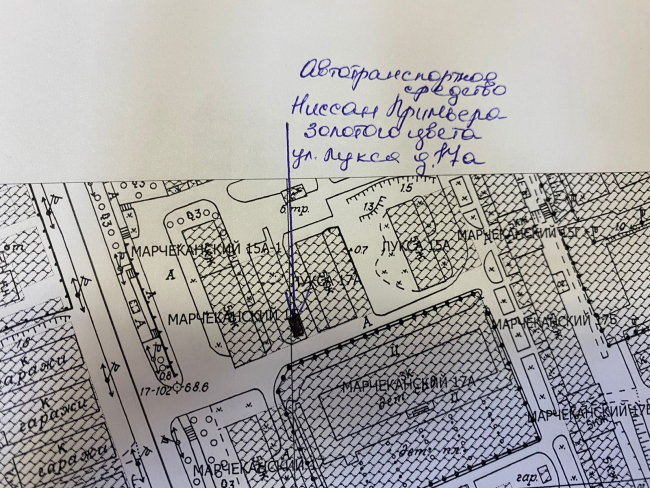 Автотранспортное
средство
Ниссан Примьера
золотого цвета
ул. Лукса д. 17а
15
б.тр.
13
МАРЧЕКАНСКИЙ 15А-1
0.7
ЛУКСА 15А
А
ЛУКСА 17А
МАРЧЕКАНСКИЙ
А
МАРЧЕКАНСКИЙ 17Б
Ц
К
гаражи
17-102 68.6
МАРЧЕКАНСКИЙ 17А
дет.
К
гаражи
К
гаражи
дет. пл.
МАРЧЕКАНСКИЙ 17
гар.